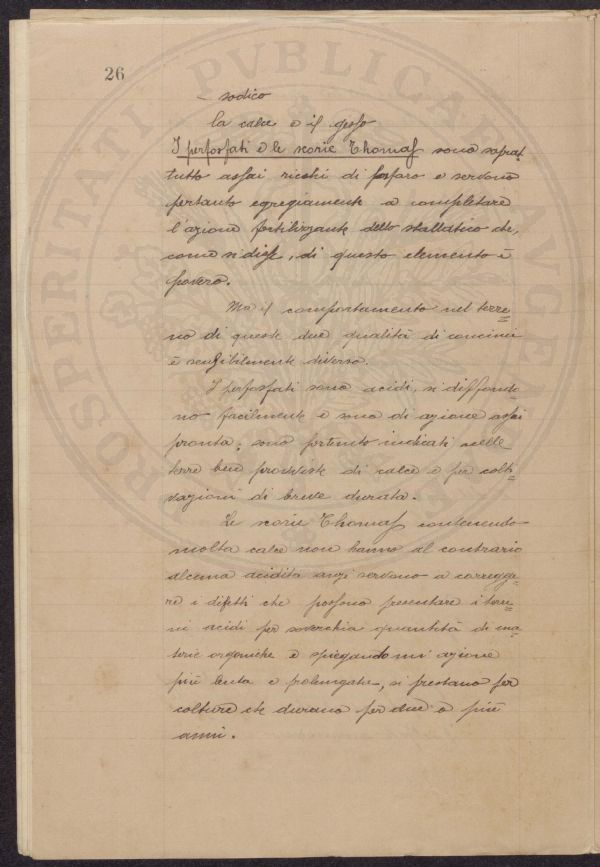 26
PROSPERITATI PVBLICAE AVGENDAE
– sodico
la calce e il gesso
I perfosfati e le scorie Thomas sono soprat-
tutto assai ricchi di fosforo e servono
pertanto egregiamente a completare
l'azione fertilizzante dello stallatico che,
come si disse, di questo elemento è
povero.
Ma il comportamento nel terre=
no di queste due qualità di concimi
è sensibilmente diverso.
I perfosfati sono acidi, si diffondo-
no facilmente e sono di azione assai
pronta; sono pertanto indicati nelle
terre ben provviste di calce e per colti-
vazioni di breve durata.
Le scorie Thomas contenendo
molta calce non hanno al contrario
alcuna acidità anzi servono a corregge-
re i difetti che possono presentare i terre-
ni acidi per soverchia quantità di ma-
terie organiche e spiegando un' azione
più lenta e prolungata, si prestano per
colture che durano per due o più
anni.